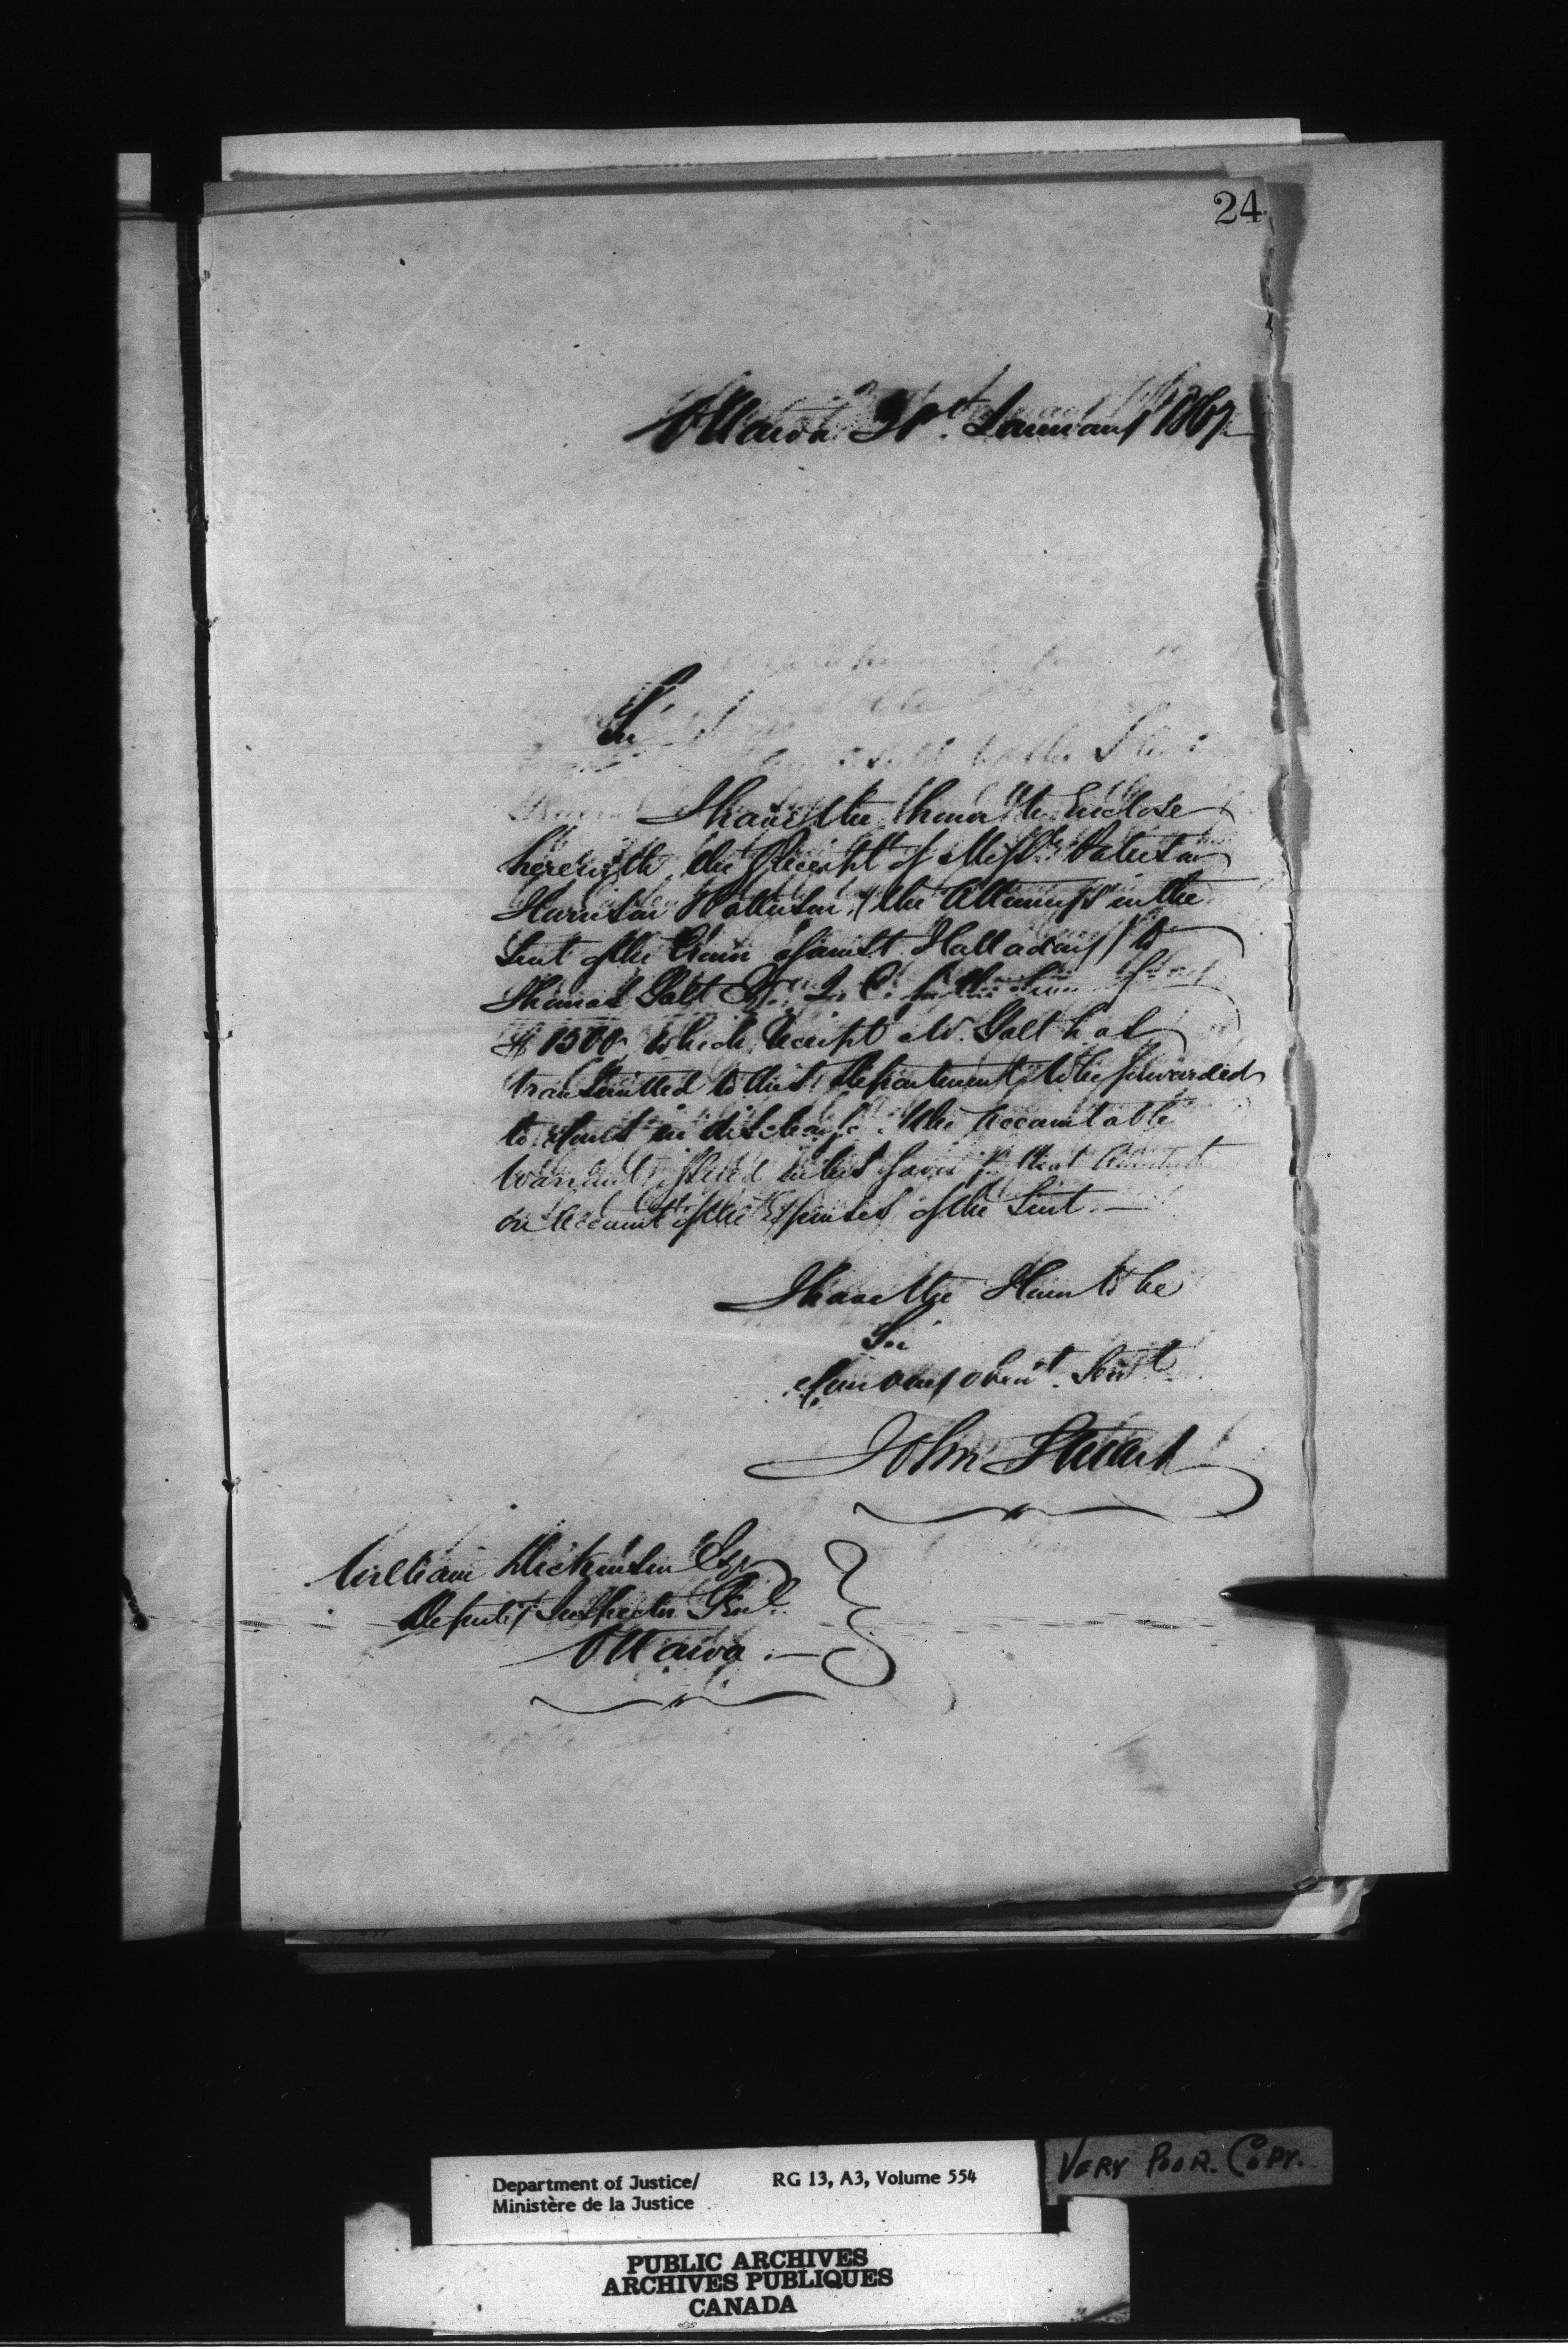 24
Ottawa 31st. January 1867
Sir
I have the honor to Enclose
herewith the Receipt of Messrs Paterson
Harrison & Patterson, (the Attorneys in the
Suit of the Crown against Halladay) to
Thomas Galt Esqr. Q. C. for the Sum of
$1500, which receipt Mr. Galt has
transmitted to this Department to be forwarded
to you in discharge of the accountable
Warrant issued in his favor for that Amount
on account of the Expenses of the Suit. —
I have the Honor to be
Sir
Your very obedt. Servt
John Stuart
William Dickinson Esqr
Deputy Inspector Genl.
Ottawa. —
Department of Justice/ RG 13, A3, Volume 554
Ministère de la Justice
VERY POOR. COPY.
PUBLIC ARCHIVES
ARCHIVES PUBLIQUES
CANADA